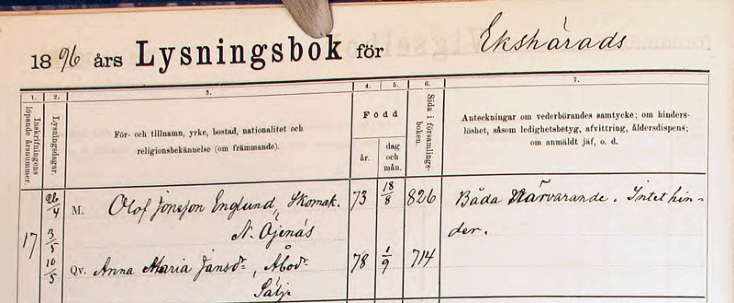 1896 års Lysningsbok för Ekshärads
1. 2. 3. 4. 5. 6. 7.
Inskrifningens löpande årsnummer.
Lysningsdagar.
För- och tillnamn, yrke, bostad, nationalitet och
religionsbekännelse (om främmande).
Född
år. dag och mån.
Sida i församlings-
boken.
Anteckningar om vederbörandes samtycke; om hinders-
löshet, såsom ledighetsbetyg, afvittring, åldersdispens;
om anmäldt jäf, o. d.
26/4 M. Olof Jonsson Englund Skomak. 73 18/8 826 Båda närvarande. Intet hin-
17 3/5 N. Öjenäs der.
10/5 Qv. Anna Maria Jansdr, Åbodr 78 1/9 714
Sälje